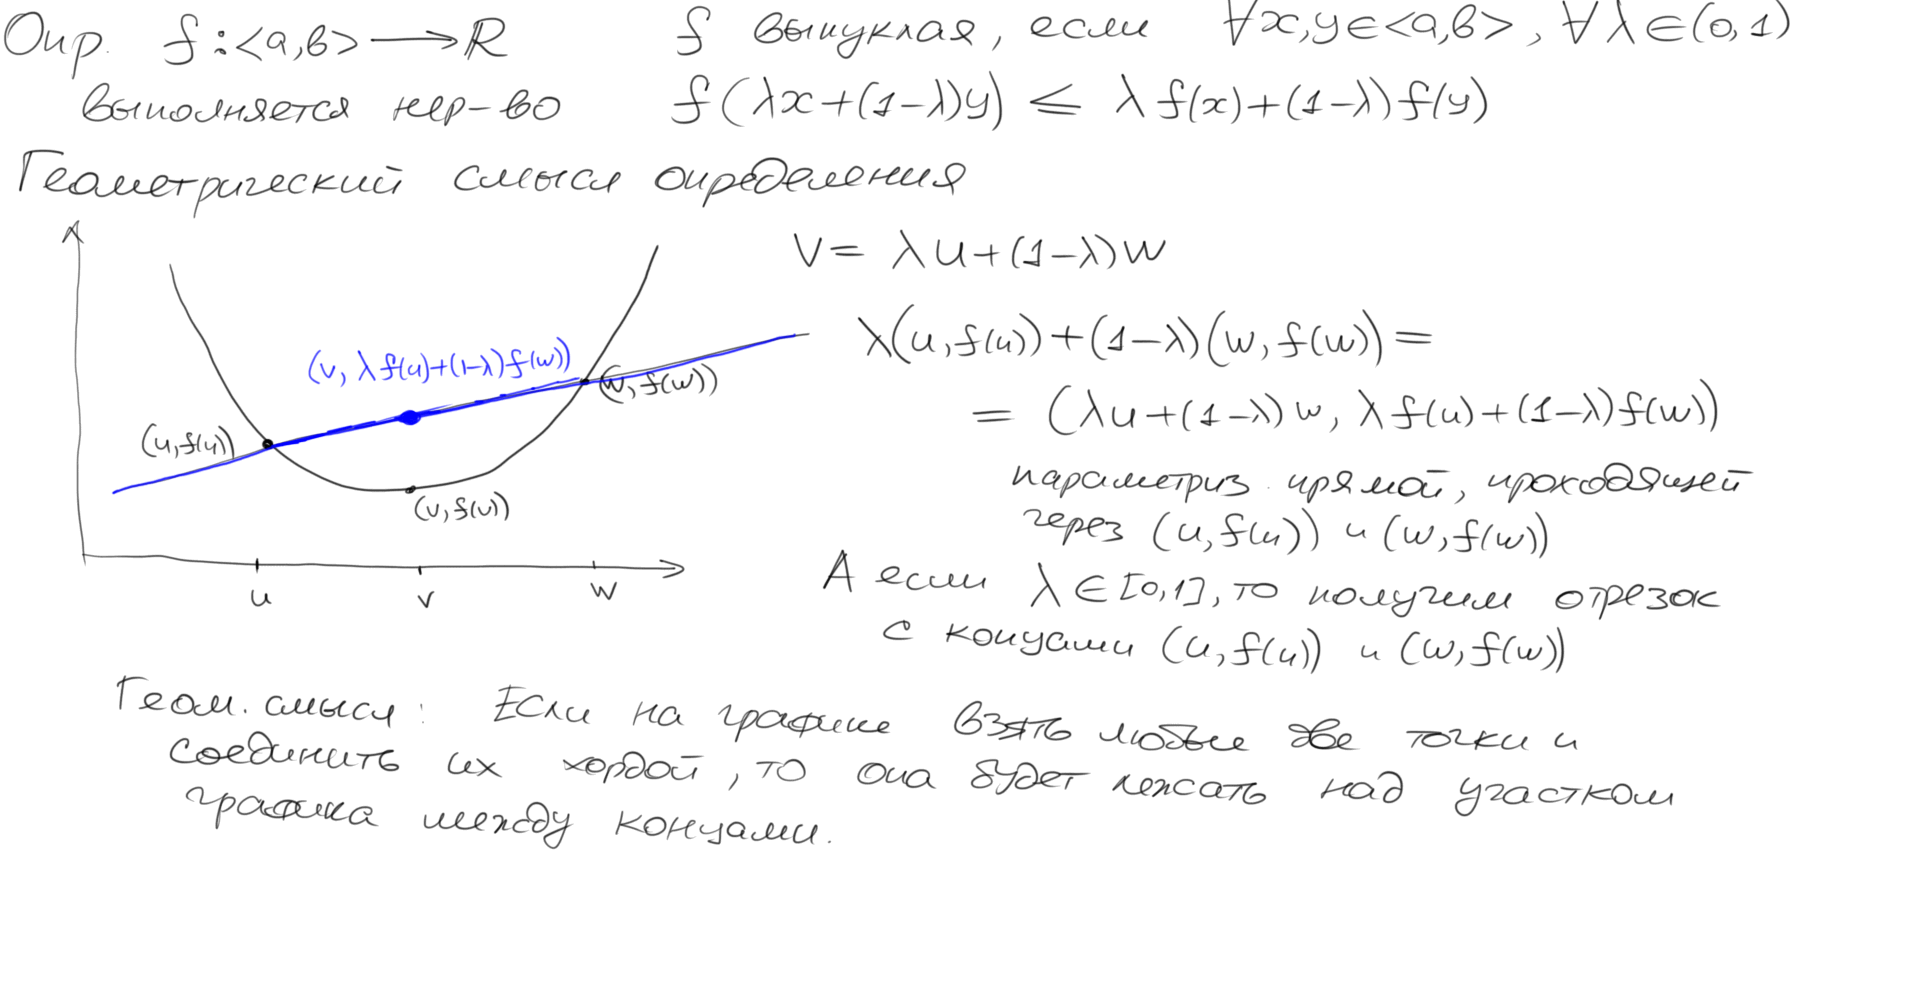 Опр. f:<a,b>⟶R f выпуклая, если ∀x,y∈<a,b>, ∀λ∈(0,1)
выполняется нер-во f(λx+(1-λ)y) ≤ λf(x)+(1-λ)f(y)
Геометрический смысл определения
V = λu+(1-λ)w
λ(u,f(u))+(1-λ)(w,f(w)) =
= (λu+(1-λ)w, λf(u)+(1-λ)f(w))
(v, λf(u)+(1-λ)f(w))
(w,f(w))
(u,f(u))
(v,f(v))
u v w
параметриз. прямой, проходящей
через (u,f(u)) и (w,f(w))
А если λ∈[0,1], то получим отрезок
с концами (u,f(u)) и (w,f(w))
Геом. смысл: Если на графике взять любые две точки и
соединить их хордой, то она будет лежать над участком
графика между концами.